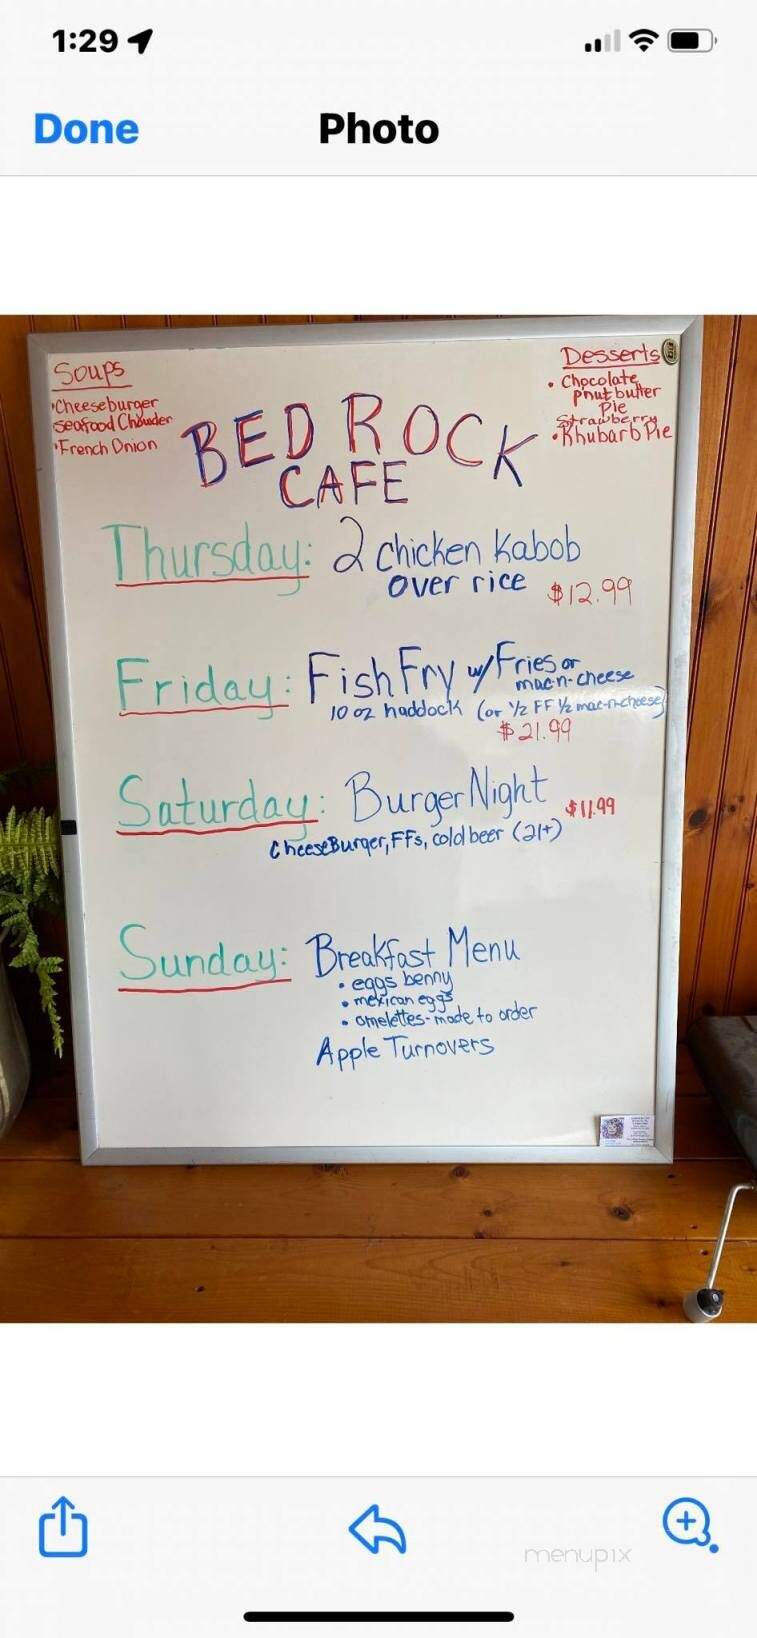 1:29
Done
Photo
Soups
•Cheeseburger
Seafood Chowder
•French Onion
Desserts
• Chocolate
Pnut butter
Pie
Strawberry
•Rhubarb Pie
BED ROCK
CAFE
Thursday: 2 chicken Kabob
over rice $12.99
Friday: Fish Fry w/ Fries or
mac-n-cheese
10 oz haddock (or 1/2 FF 1/2 mac-n-cheese)
$21.99
Saturday: Burger Night $11.99
CheeseBurger, FFs, cold beer (21+)
Sunday: Breakfast Menu
• eggs benny
• mexican eggs
• omelettes-made to order
Apple Turnovers
menupix